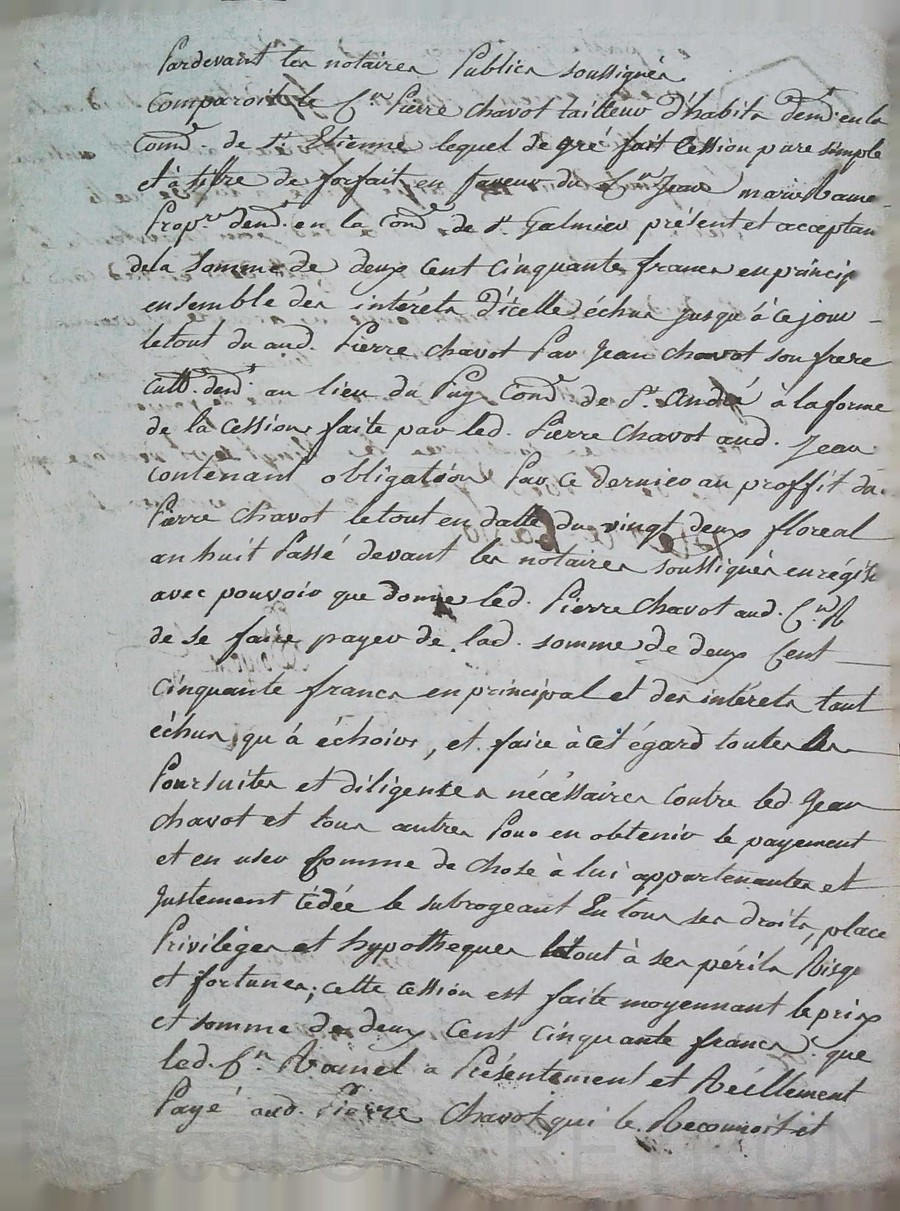 Pardevant les notaires Publics soussignés
Comparoit le C.en Pierre Chavot tailleur d'habits dem.t en la
Com.e de S.t Etienne lequel de gré fait Cession pure simple
et à titre de forfait en faveur du C.en Jean marie Rame
Prop.re dem.t en la Com.e de S.t Galmier présent et acceptan
de la Somme de deux cent cinquante francs en princip
ensemble des intérets d'icelle échus jusqu'à ce jour
le tout du aud. Pierre Chavot Par Jean Chavot son frere
Cult. dem.t au lieu du Puy Com.e de S.t André à la forme
de la Cession faite par led. Pierre Chavot aud. Jean
contenant obligation Par ce dernier au proffit du
Pierre Chavot le tout en datte du vingt deux floreal
an huit Passé devant les notaires soussignés enrégist
avec pouvoir que donne led. Pierre Chavot aud. C.en R
de se faire payer de lad. somme de deux Cent
cinquante francs en principal et des intérets tant
échus qu'à échoir, et faire à cet égard toutes les
Poursuites et diligenses nécéssaires Contre led. Jean
Chavot et tous autres Pour en obtenir le payement
et en user Comme de chose à lui appartenantes et
Justement Cédée le subrogeant En tous ses droits, place
Privilèges et hypotheques letout à ses périls Risqe
et fortunes; cette cession est faite moyennant le prix
et somme de deux Cent cinquante francs que
led. C.en Ramel a Présentement et Réellement
Payé aud. Pierre Chavot qui le Reconnoit et